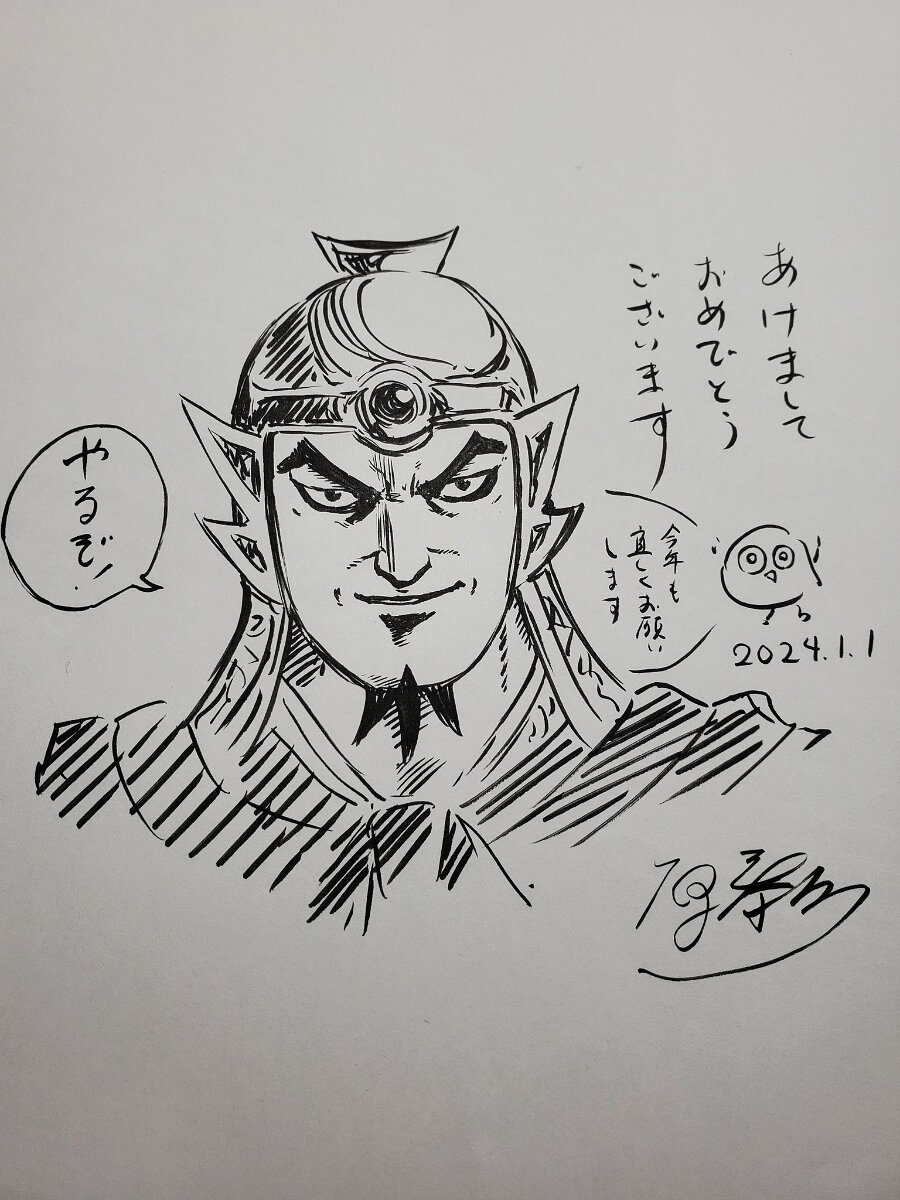 あけまして
おめでとう
ございます
今年も
宜しくお願い
します
2024.1.1
やるぞ!
原泰久